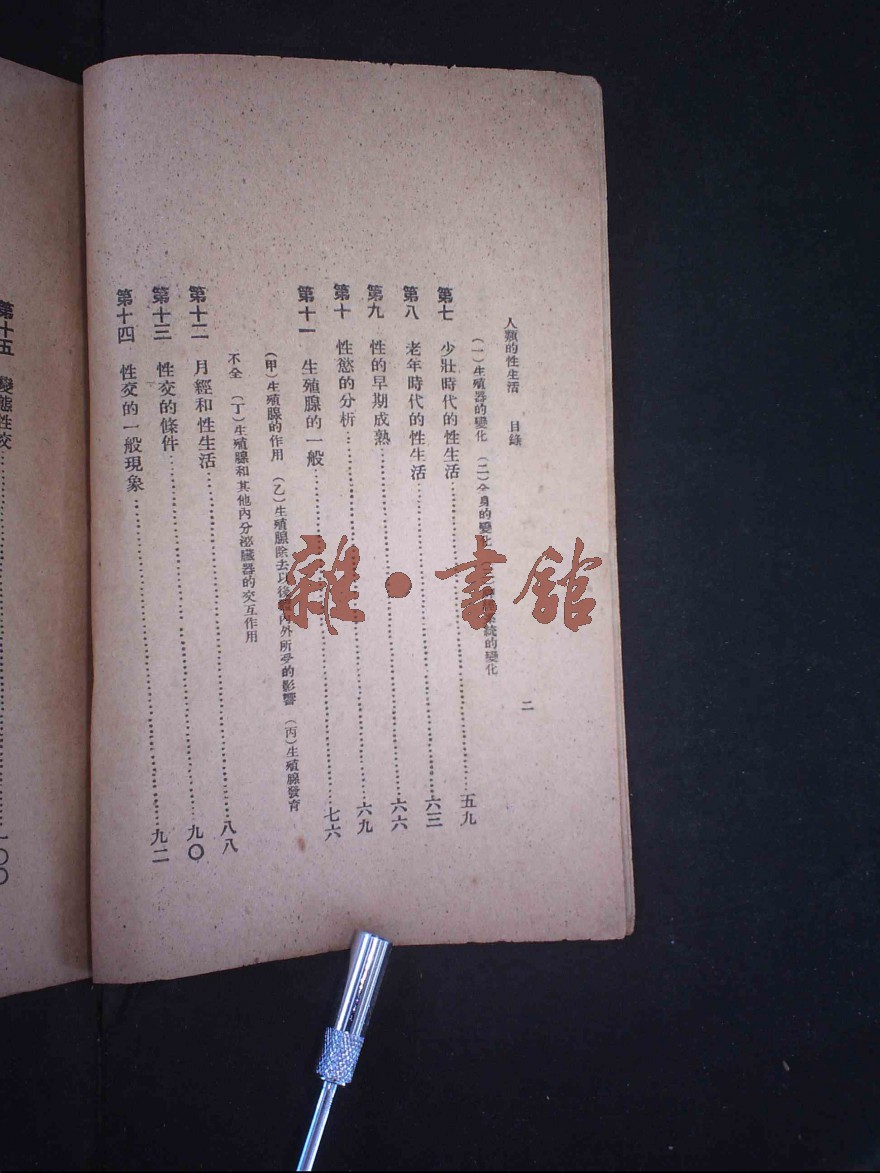 人類的性生活 目錄 二
(一)生殖器的變化 (二)全身的變化 系統的變化
第七 少壯時代的性生活……五九
第八 老年時代的性生活……六三
第九 性的早期成熟……六六
第十 性慾的分析……六九
第十一 生殖腺的一般……七六
(甲)生殖腺的作用 (乙)生殖腺除去以後體內外所受的影響 (丙)生殖腺發育
不全 (丁)生殖腺和其他內分泌臟器的交互作用
第十二 月經和性生活……八八
第十三 性交的條件……九〇
第十四 性交的一般現象……九二
第十五 變態性交……一〇〇
雜·書館